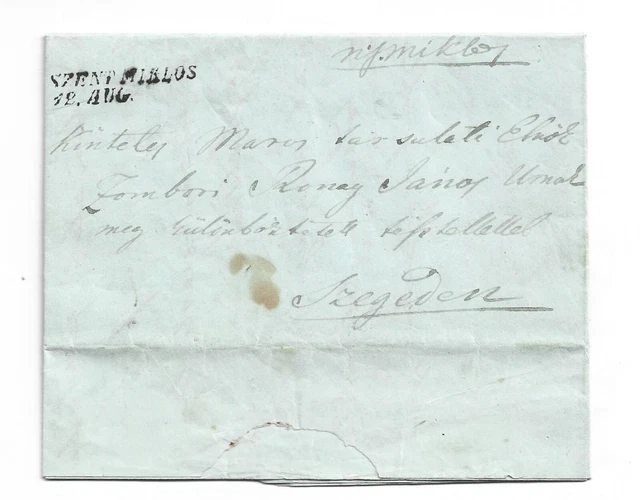 n sz. miklos
SZENT MIKLOS
12. AUG.
Maros társulati Elnök
Zombori Ronay János Urnak
meg külömböztetett tisztelettel
Szegeden